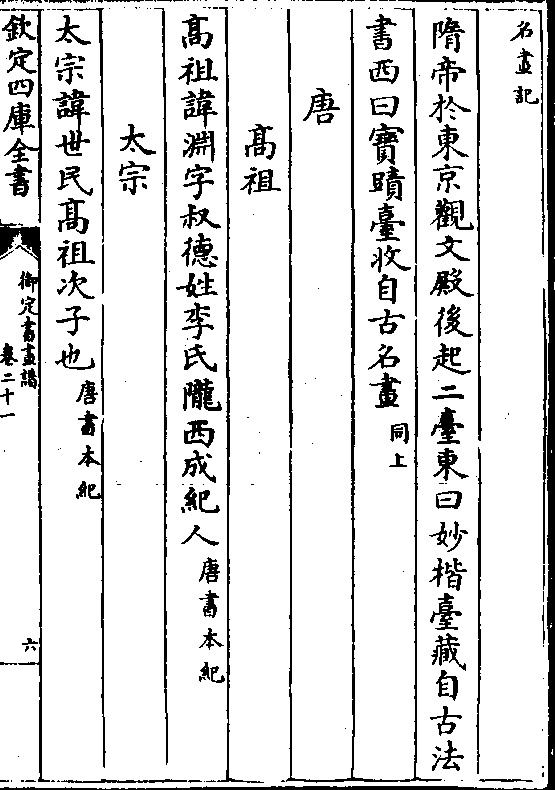 名畫記
隋帝於東京觀文殿後起二臺東曰妙楷臺藏自古法
書西曰寶蹟臺收自古名畫同上
唐
高祖
高祖諱淵字叔德姓李氏隴西成紀人唐書本紀
太宗
太宗諱世民高祖次子也唐書本紀
欽定四庫全書
御定書畫譜
卷二十一
六